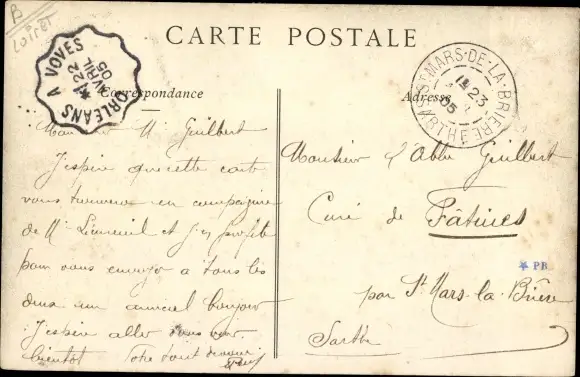 B
Loiret
CARTE POSTALE
Correspondance
Adresse
ORLEANS A VOVES
22
AVRIL
05
ST MARS-DE-LA-BRIERE
23
05
SARTHE
Monsieur Guilbert
J'espère que cette carte
vous trouvera en compagnie
de Mr et j'en profite
pour vous envoyer à tous les
deux un amical bonjour
J'espère aller vous voir
bientôt Votre tout dévoué
Monsieur l'Abbé Guilbert
Curé de Fâtines
par St Mars-la-Brière
Sarthe
PB